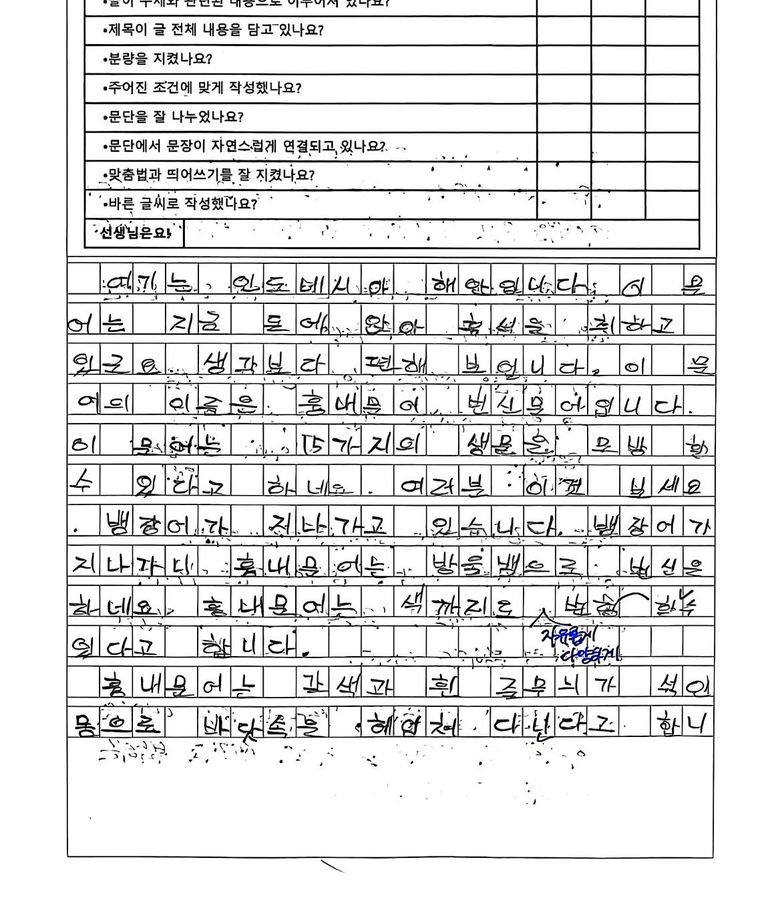 •글이 주제와 관련된 내용으로 이루어져 있나요?
•제목이 글 전체 내용을 담고 있나요?
•분량을 지켰나요?
•주어진 조건에 맞게 작성했나요?
•문단을 잘 나누었나요?
•문단에서 문장이 자연스럽게 연결되고 있나요?
•맞춤법과 띄어쓰기를 잘 지켰나요?
•바른 글씨로 작성했나요?
선생님은요!
여기는 인도네시아 해안입니다. 이 문
어는 지금 돌에 앉아 휴식을 취하고
있군요 생각보다 편해 보입니다. 이 문
어의 이름은 흉내문어 변신문어입니다.
이 문어는 15가지의 생물을 모방 할
수 있다고 하네요. 여러분 이것 보세요
. 뱀장어가 지나가고 있습니다. 뱀장어가
지나가니 흉내문어는 바욱뱀으로 변신을
하네요. 흉내문어는 색까지도 변형 할수
자유롭게
다양하게
있다고 합니다.
흉내문어는 갈색과 흰 줄무늬가 섞인
몸으로 바닷속을 헤엄쳐 다닌다고 합니